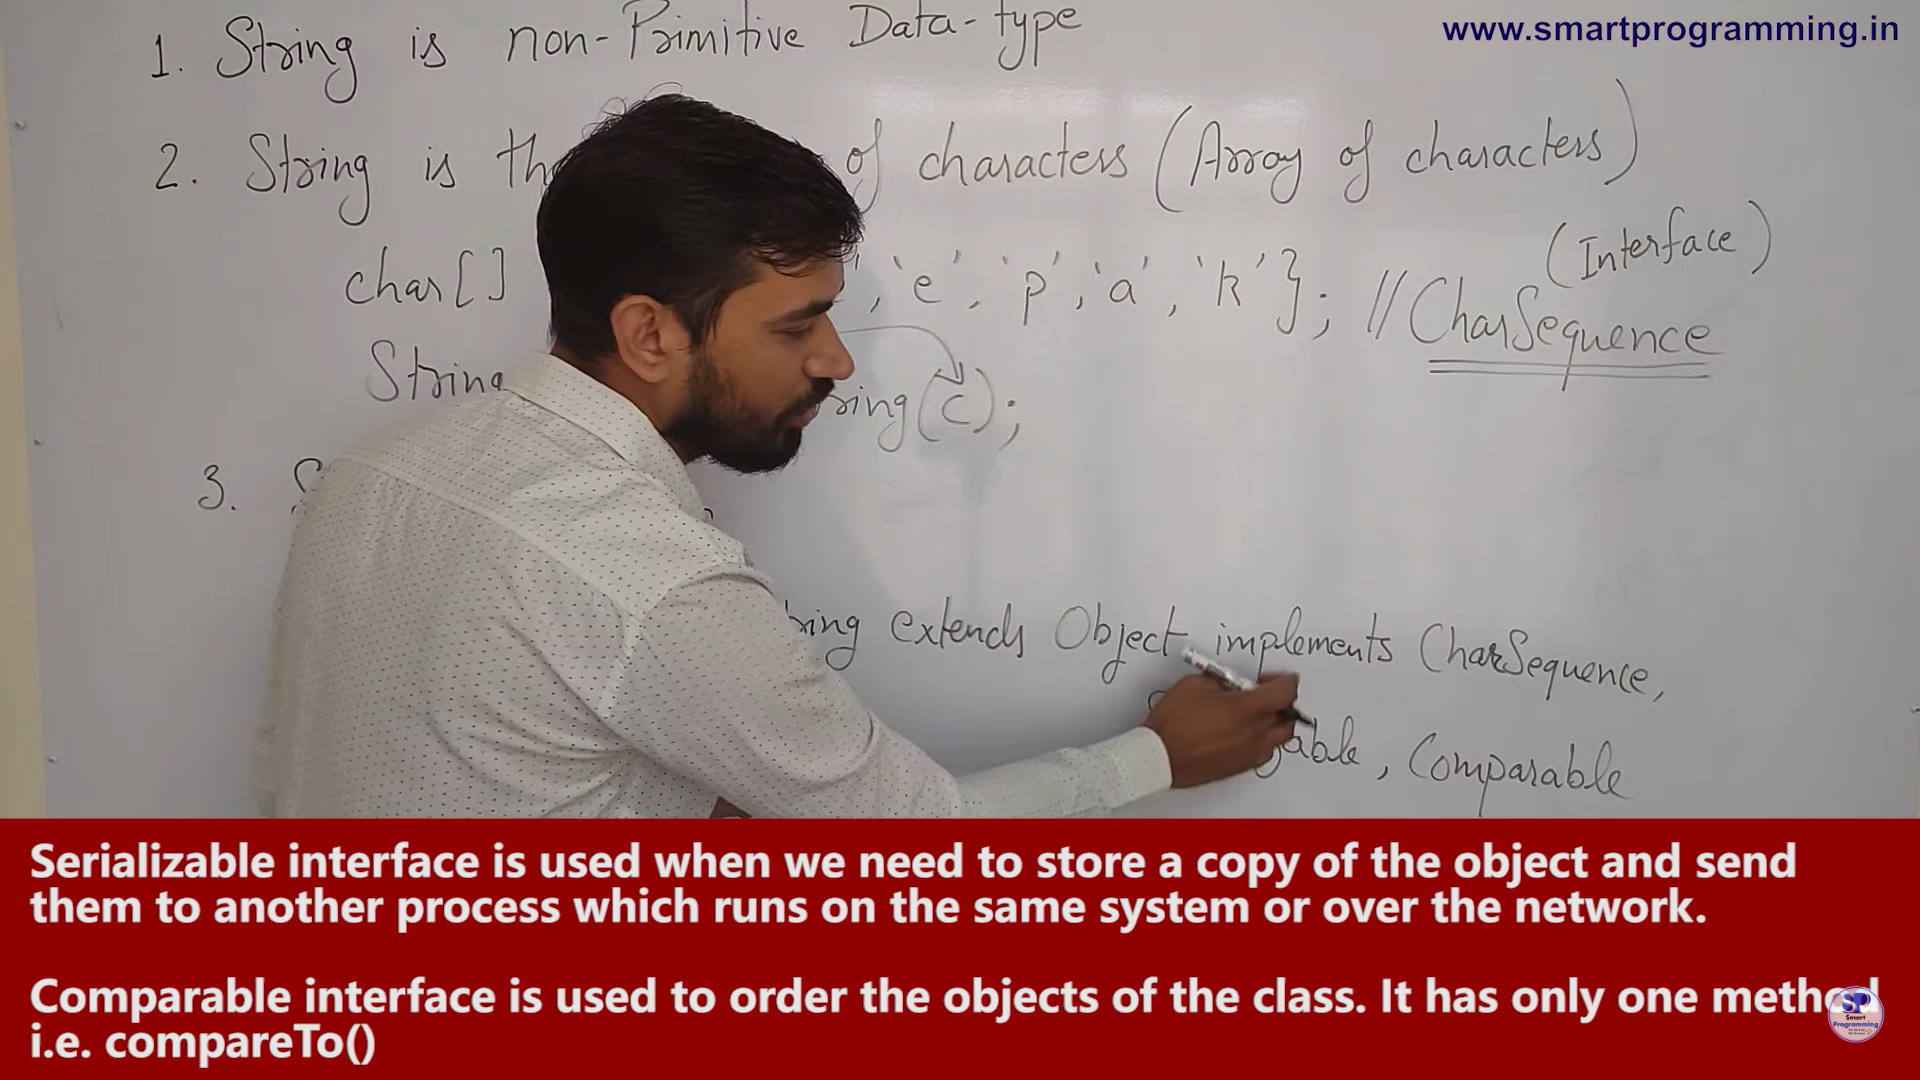 www.smartprogramming.in
1. String is non-Primitive Data-type
2. String is the of characters (Array of characters)
(Interface)
char[] , 'e', 'p', 'a', 'k'}; // CharSequence
String ring(c);
3. S
ring extends Object implements CharSequence,
able, Comparable
Serializable interface is used when we need to store a copy of the object and send
them to another process which runs on the same system or over the network.
Comparable interface is used to order the objects of the class. It has only one method
i.e. compareTo()
SP
Smart
Programming